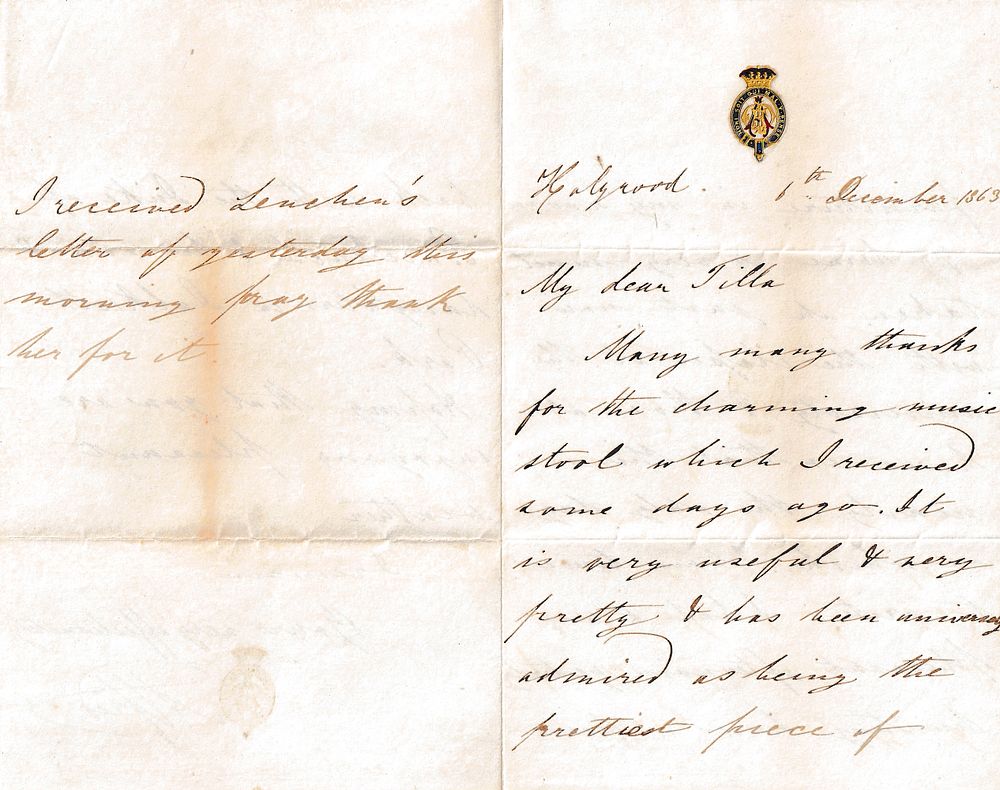 Holyrood. 6th December 1863
My dear Tilla
Many many thanks
for the charming music
stool which I received
some days ago. It
is very useful & very
pretty & has been universally
admired as being the
prettiest piece of
I received Lenchen's
letter of yesterday this
morning pray thank
her for it.
HONI SOIT QUI MAL Y PENSE